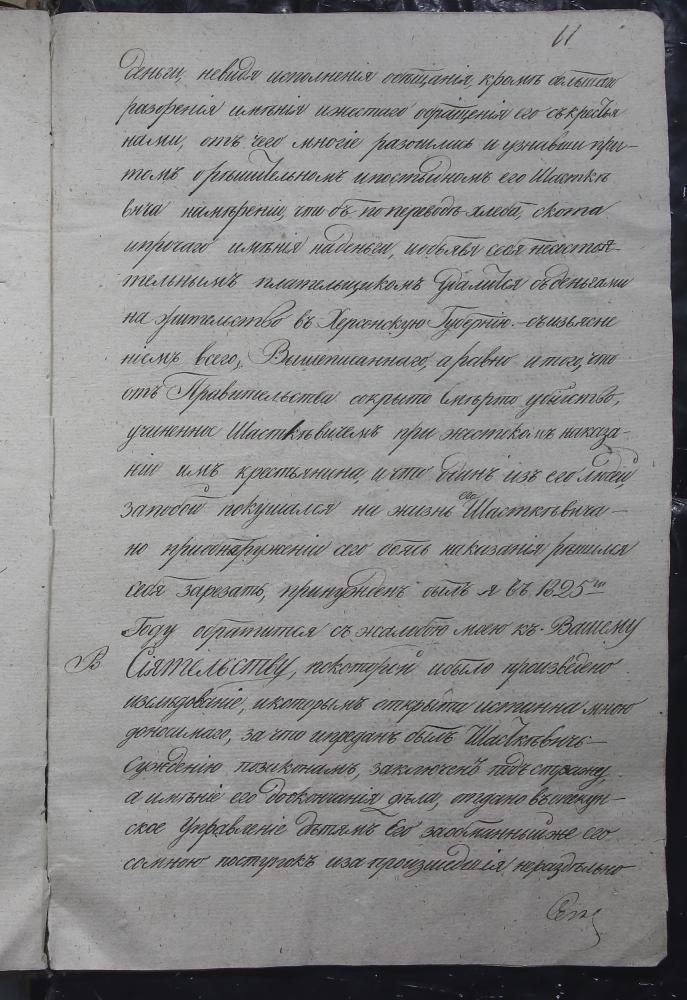 11
деньги, невидя исполнения обѣщанія, кромѣ большаго
разоренія имѣнія ижестаго обращенія его съ кресть͏я
нами, отъ чего многіе разошлись и узнавши при-
томъ орѣшительномъ ипостыдномъ его Шасткѣ
вича намѣреніи, что бъ попереводѣ хлеба, скота
ипрочаго имѣнія наденьги, иобъявя себя несостоя-
тельнымъ плательщикомъ удалится съ деньгами
на жительство въ Херсонскую Губернію.-съизъясне
ніемъ всего, Вышеписаннаго, а равно итого, что
отъ Правительства сокрыто Смерто убійство,
учиненное Шасткѣвичемъ при жестокомъ наказа-
ніи имъ крестьянина, ичто одинъ изъ его людей,
запобои покушался на жизнь его Шасткѣвича-
но приобнаруженіи сего боясь наказанія рѣшился
себя зарезать, принужденъ былъ я въ 1825мъ
Году обратится съ жалобою моею къ Вашему
В Сіятельству, покоторой ибыло произведено
изслѣдованіе, икоторымъ открыта истинна мною
доносимаго, за что ипреданъ былъ Шасткѣвичь-
сужденію позаконамъ, заключенъ подъ стражу
а имѣніе его доокончанія дѣла, отдано въопекун-
ское управленіе дѣтямъ Его заобманный же его
сомною поступокъ иза произшедшія нераздѣльно